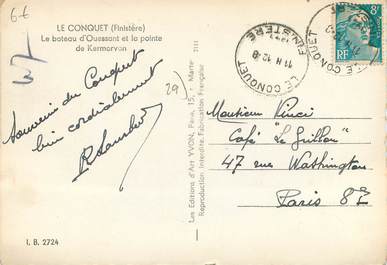 6-6
LE CONQUET (Finistère)
Le bateau d'Ouessant et la pointe
de Kermorvan
Souvenir du Conquet
bien cordialement
29)
Les Editions d'Art YVON, Paris, 15, r. Martel
Reproduction Interdite. Fabrication Française
LE CONQUET
FINISTERE
LE CONQUET
8F
RF
Monsieur Vinci
Café "Le Grillon"
47 rue Washington
Paris 8e
I. B. 2724